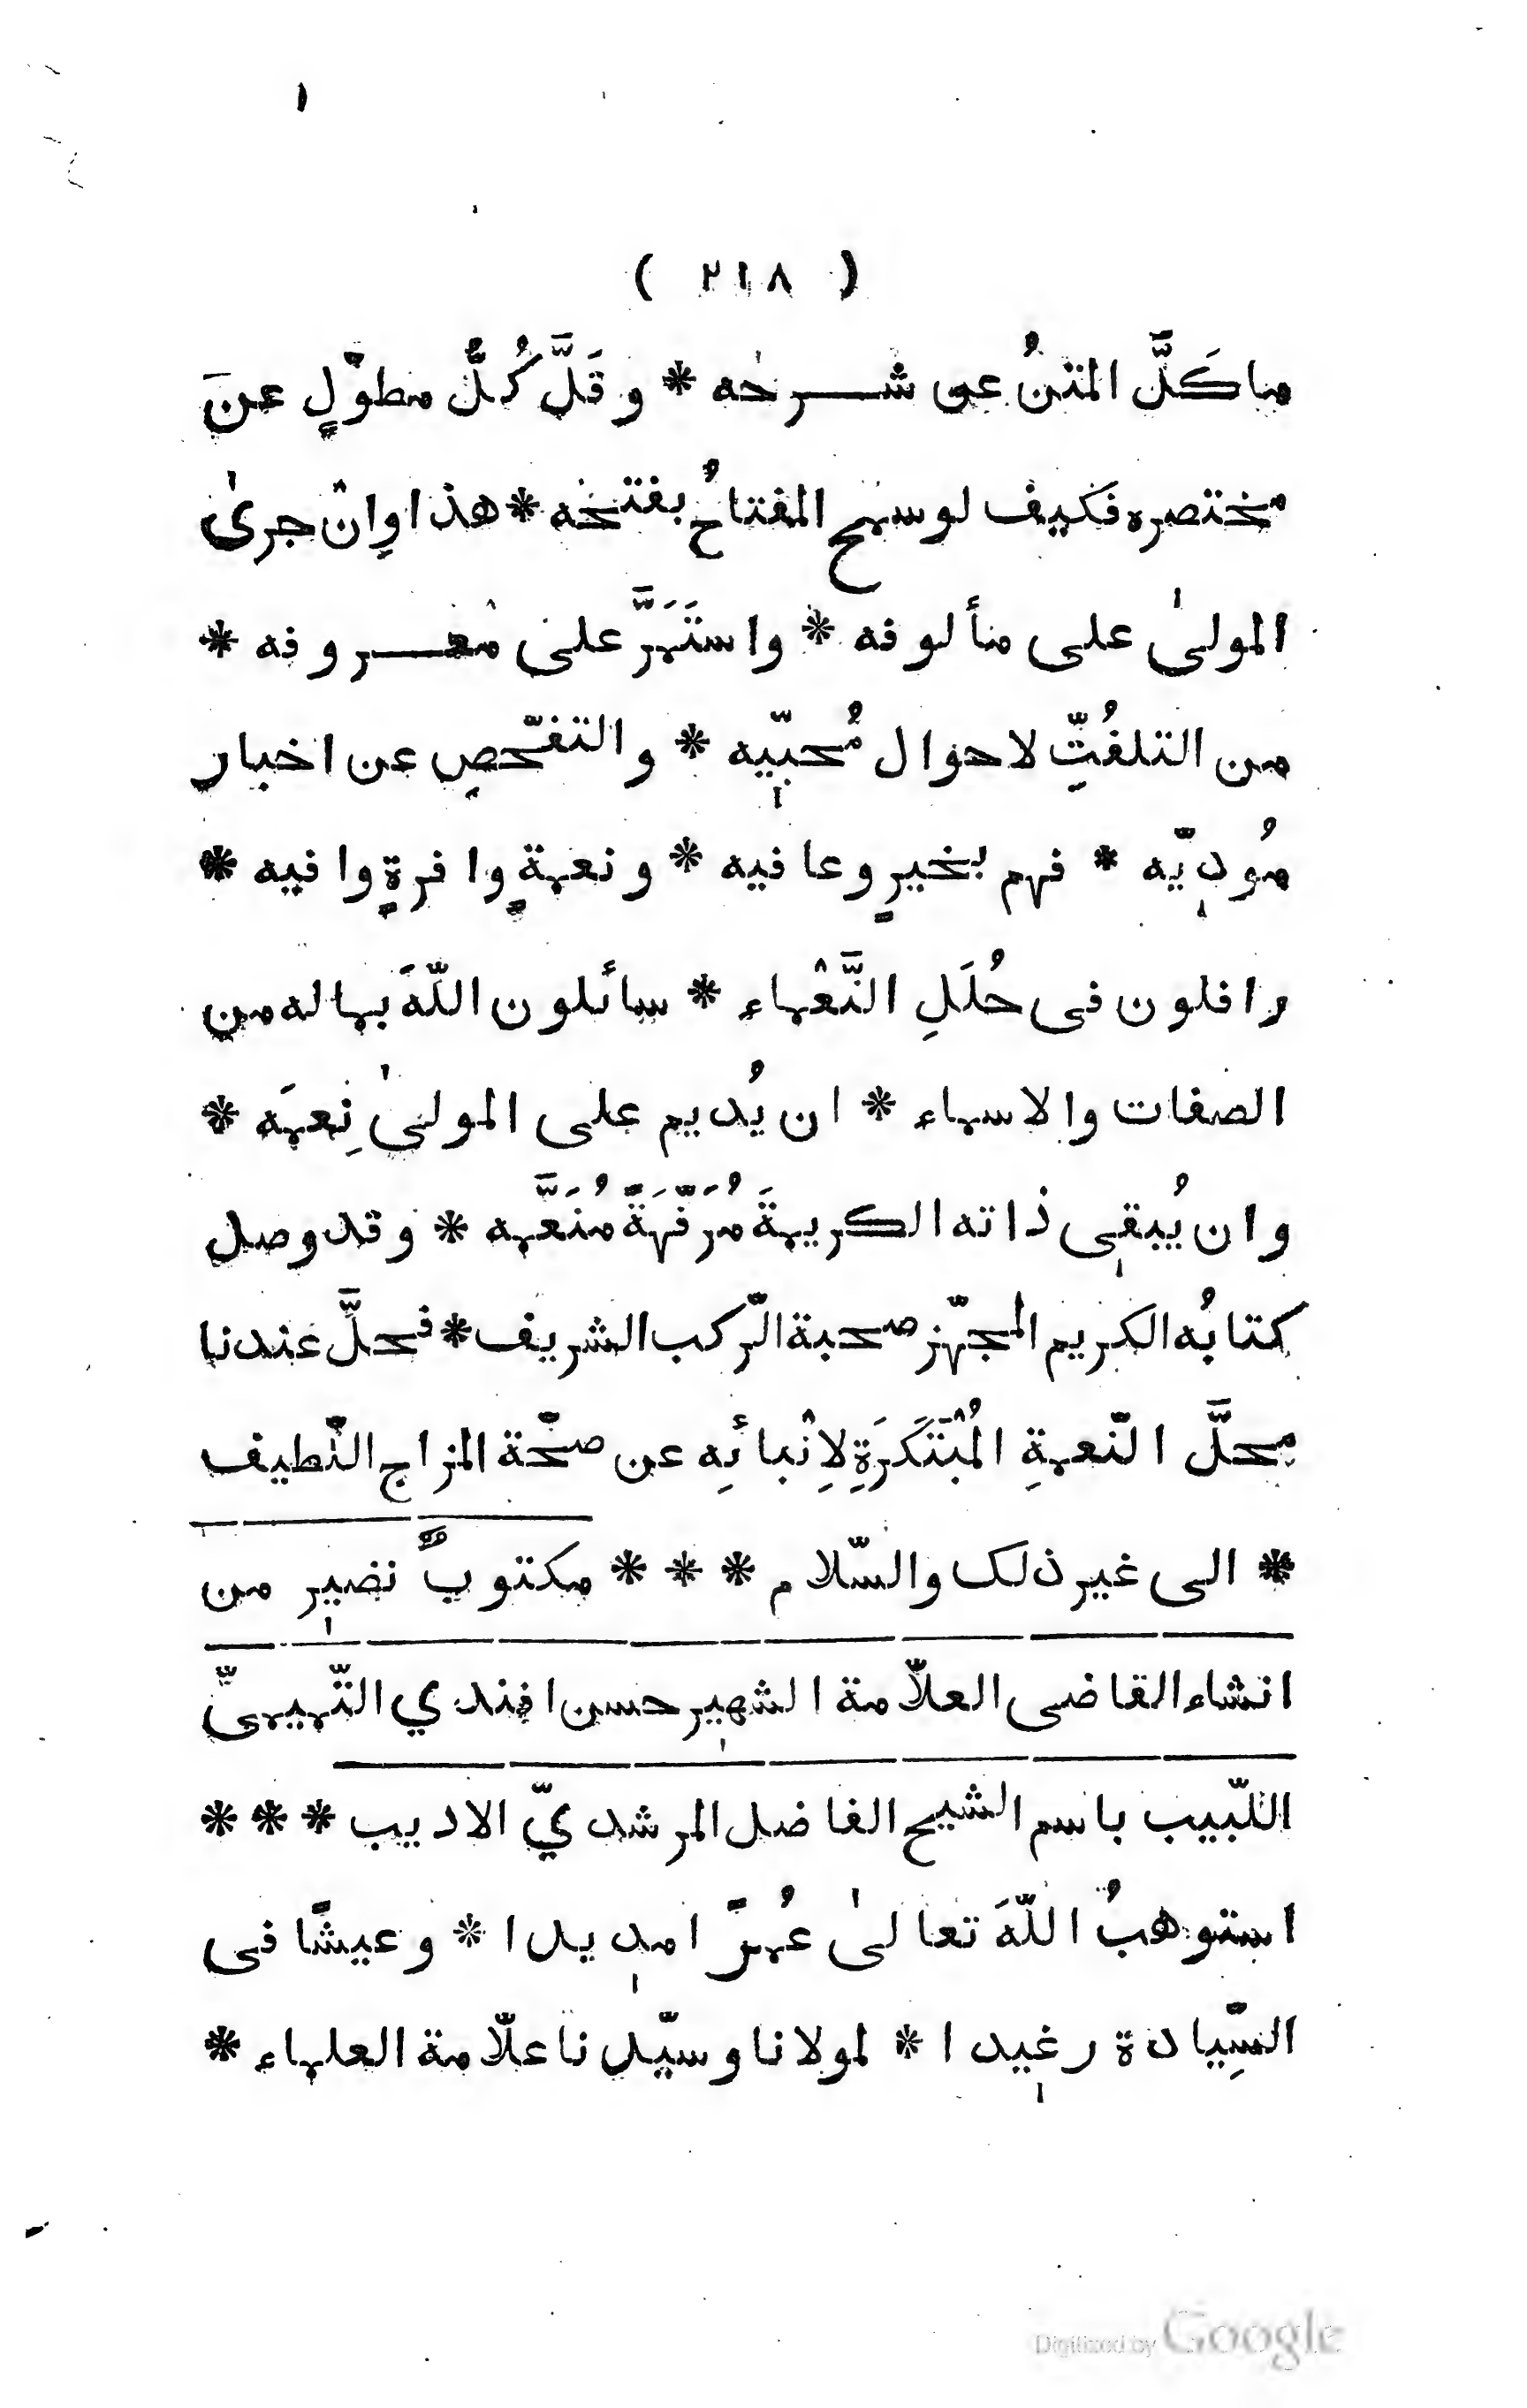 ( ٢١٨ )
ما كَلَّ المتنُ عن شـرحه * و قَلَّ كُلُّ مطوّلٍ عنَ
مختصره فكيف لو سمح المفتاحُ بفتحه * هذا وإنْ جرىٰ
المولىٰ على مألوفه * واستَمَرَّ على معـروفه *
من التلفُتِّ لاحوال مُحبّيه * والتفحّصِ عن اخبار
مُودّيه * فهم بخيرٍ وعافيه * ونعمةٍ وافرةٍ وافيه *
رافلون فى حُلَلِ النَّعْماءِ * سائلون اللّهَ بماله من
الصفات والاسماء * ان يُديم على المولىٰ نِعمَه *
وان يُبقى ذاته الكريمةَ مُرَفَّهَةً مُنَعَّمه * وقد وصل
كتابُه الكريم المجهّز صحبة الرّكب الشريف * فحلَّ عندنا
محلَّ النّعمةِ المُبْتَكَرَةِ لِاِنْبائِه عن صحّة المزاج اللّطيف
* الى غير ذلك والسّلام * * * مكتوبٌ نضير من
انشاء القاضى العلّامة الشهير حسن افندي التّميمىّ
اللّبيب باسم الشيخ الفاضل المرشديّ الاديب * * *
استوهبُ اللّهَ تعالىٰ عُمرً ا مديدا * وعيشًا فى
السِّيادة رغيدا * لمولانا وسيّدنا علّامة العلماء *
Digitized by Google